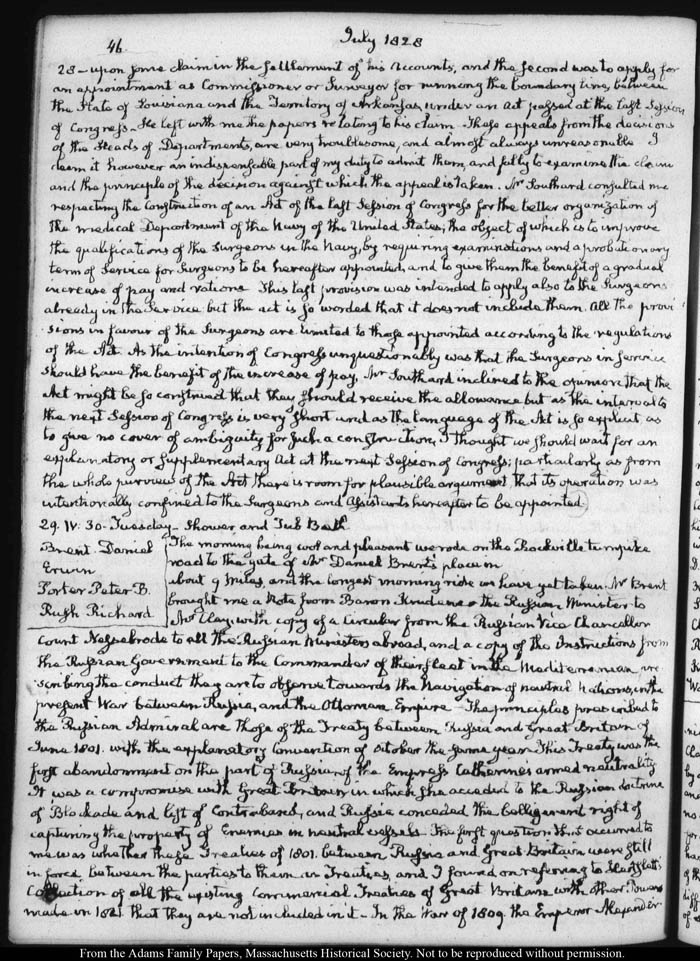 46.
July 1828
28 – upon some claim in the settlement of his Accounts, and the second was to apply for
an appointment as Commissioner or Surveyor for running the boundary line, between
the State of Louisiana and the Territory of Arkansas, under an Act passed at the last Session
of Congress – He left with me the papers relating to his claim – These appeals from the decisions
of the Heads of Departments, are very troublesome, and almost always unreasonable I
deem it however an indispensable part of my duty to admit them, and fully to examine the claim
and the principle of the decision against which the appeal is taken. Mr Southard consulted me
respecting the Construction of an Act of the last Session of Congress for the better organization of
the medical Department of the Navy of the United States; the object of which is to improve
the qualifications of the Surgeons in the Navy, by requiring examinations and a probationary
term of Service for Surgeons to be hereafter appointed, and to give them the benefit of a gradual
increase of pay and rations This last provision was intended to apply also to the Surgeons
already in the Service but the act is so worded that it does not include them. All the provi-
sions in favour of the Surgeons are limited to those appointed according to the regulations
of the Act. As the intention of Congress unquestionably was that the Surgeons in service
should have the benefit of the increase of pay, Mr Southard inclined to the opinion that the
Act might be so construed that they should receive the allowance but as the interval to
the next Session of Congress is very short and as the language of the Act is so explicit as
to give no cover of ambiguity for such a construction, I thought we should wait for an
explanatory or supplementary Act at the next Session of Congress; particularly as from
the whole purview of the Act there is room for plausible argument that its operation was
intentionally confined to the Surgeons and Assistants hereafter to be appointed
29. IV. 30. Tuesday – Shower and Tub Bath.
Brent. Daniel
Erwin
Porter Peter B.
Rush Richard
The morning being cool and pleasant we rode on the Rockville turnpike
road to the gate of Mr Daniel Brent's place in
about 9 miles, and the longest morning ride we have yet taken. Mr Brent
brought me a Note from Baron Krudener the Russian Minister to
Mr Clay, with copy of a Circular from the Russian Vice Chancellor
Count Nesselrode to all the Russian Ministers abroad, and a copy of the Instructions from
the Russian Government to the Commander of their fleet in the Mediterranean, pre-
scribing the conduct they are to observe towards the Navigation of neutral Nations, in the
present War between Russia, and the Ottoman Empire – The principles prescribed to
the Russian Admiral are those of the Treaty between Russia and Great Britain of
June 1801. with the explanatory Convention of October the same year. This Treaty was the
first abandonment on the part of Russia, of the Empress Catherine's armed neutrality
It was a compromise with Great Britain in which she acceded to the Russian doctrine
of Blockade and list of Contraband, and Russia conceded the belligerent right of
capturing the property of Enemies in neutral vessels. The first question that occurred to
me was whether these Treaties of 1801. between Russia and Great Britain were still
in force between the parties to them as Treaties, and I found on referring to Hertslet's
Collection of all the existing Commercial Treaties of Great Britain with other Powers
made in 1821 that they are not included in it – In the War of 1809 the Emperor Alexander
From the Adams Family Papers, Massachusetts Historical Society. Not to be reproduced without permission.